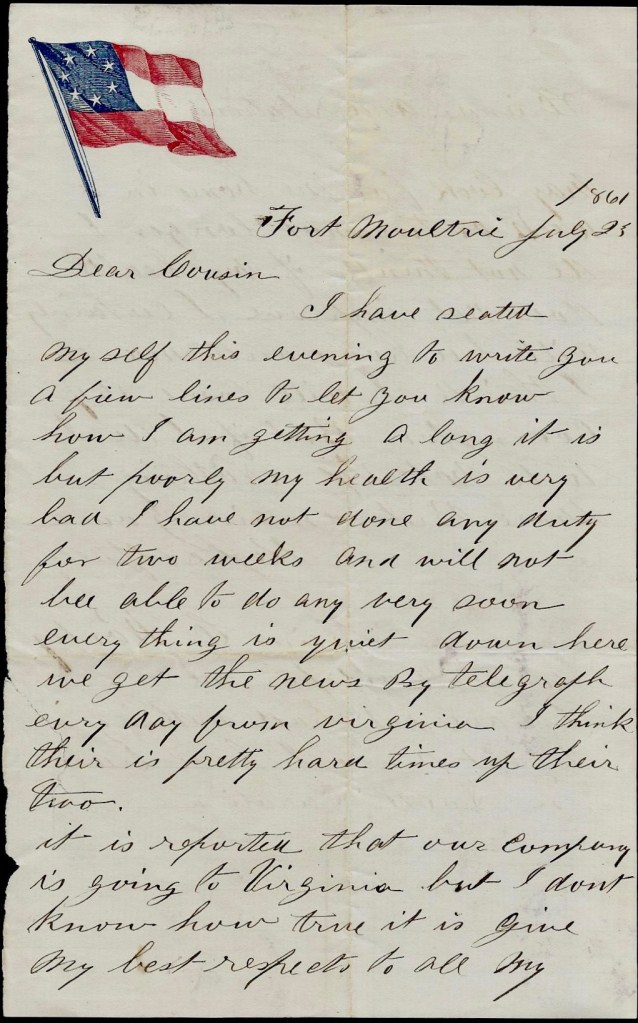 1861
Fort Moultrie July 25
Dear Cousin
I have seated
my self this evening to write you
a fiew lines to let you know
how I am getting a long it is
but poorly my health is very
bad I have not done any duty
for two weeks and will not
bee able to do any very soon
every thing is quiet down here
we get the news By telegraph
evry day from virginia I think
their is pretty hard times up their
two.
it is reported that our company
is going to Virginia but I dont
know how true it is give
my best respects to all my